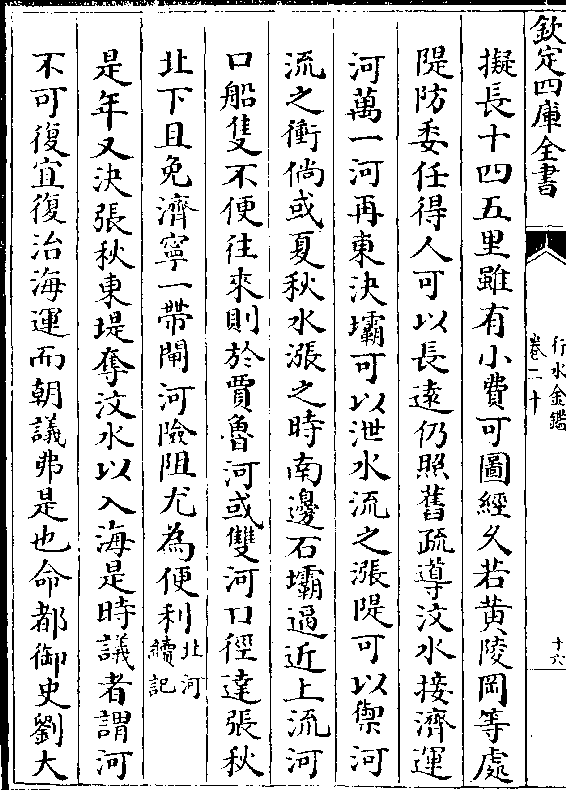 欽定四庫全書
行水金鑑
卷二十
十六
擬長十四五里雖有小費可圖經久若黄陵岡等處
隄防委任得人可以長遠仍照舊疏導汶水接濟運
河萬一河再東決壩可以泄水流之漲隄可以禦河
流之衝倘或夏秋水漲之時南邊石壩逼近上流河
口船隻不便往來則於賈魯河或雙河口徑達張秋
北下且免濟寧一帶閘河險阻尤為便利北河
續記
是年又決張秋東堤奪汶水以入海是時議者謂河
不可復宜復治海運而朝議弗是也命都御史劉大